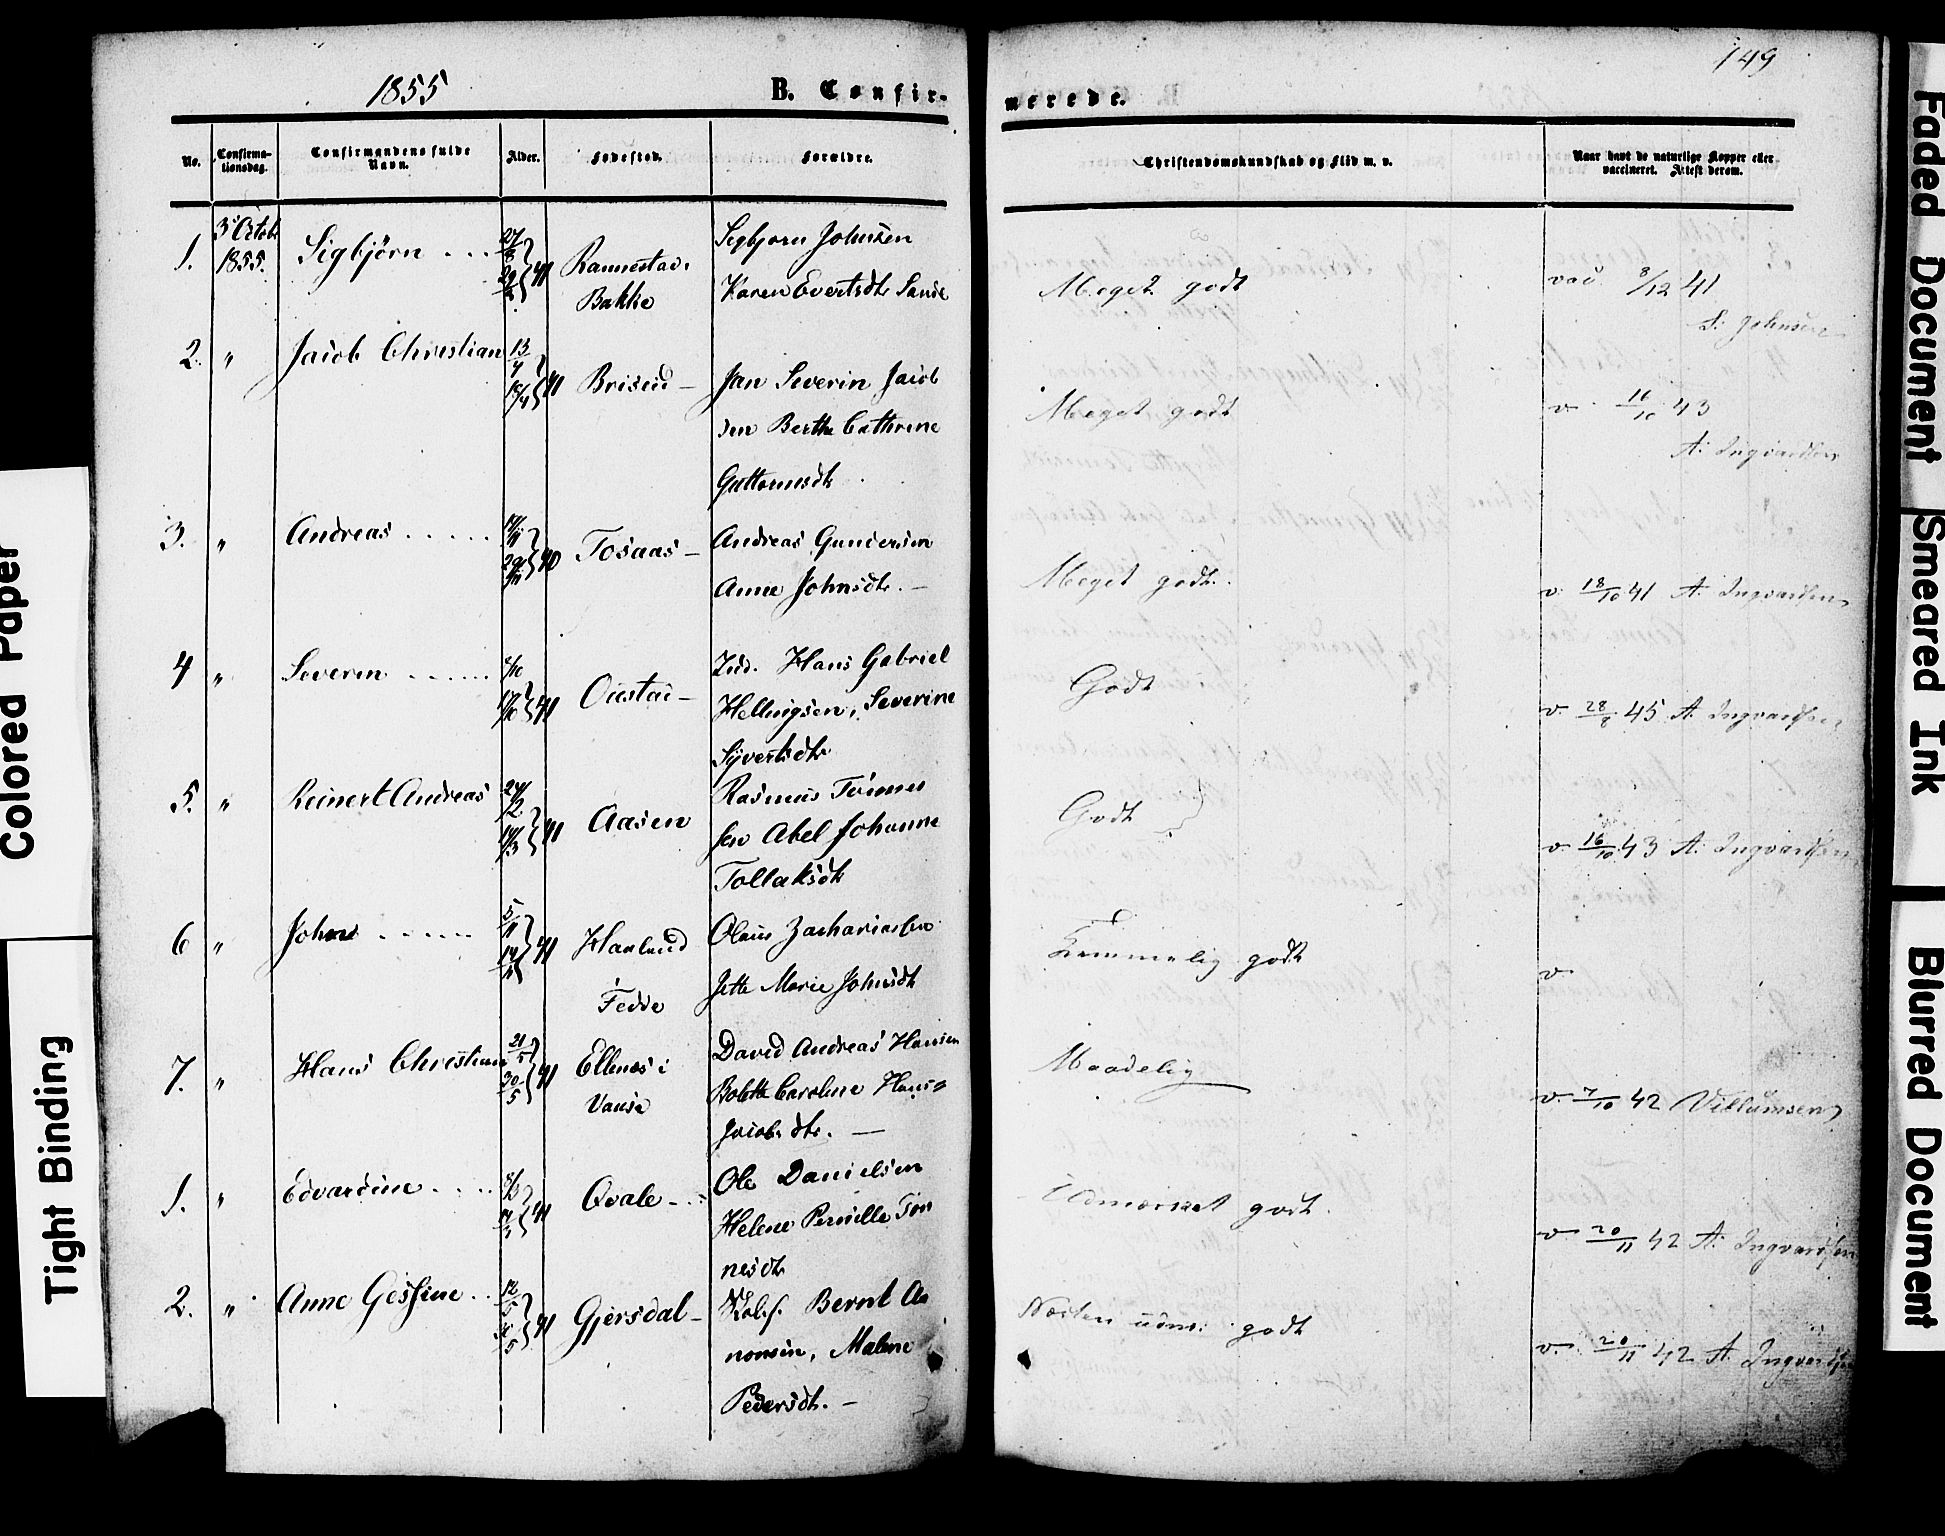 1855
B. Confir-
merede.
149
No.
Confirma-
tionsdag.
Confirmandens fulde
Navn.
Alder.
Fødested.
Forældre.
Christendomskundskab og Flid m. v.
Naar havt de naturlige Kopper eller
vaccineret. Attest derom.
1.
3' Octobr
1855.
Sigbjörn . . .
41
Rannestad.
Bakke
Sigbjorn Johnsen
Karen Evertsdtr Sande
Meget godt
vac 8/12 41
S. Johnsen
2. "
Jacob Christian
13/4
18/4 41
Briseid —
Jan Severin Jacob
sen Berthe Cathrine
Guttormsdtr
Meget godt
v. 16/10 43
A. Ingvardsen
3. "
Andreas . . . . .
29/11 40
Tosaas —
Andreas Gundersen
Anne Johnsdtr. —
Meget godt.
v. 18/10 41 A. Ingvardsen
4 "
Severin . . . . . .
41
Oustad —
Ind. Hans Gabriel
Hellingsen, Severine
Syvertsdtr
Godt
v. 28/8 45 A. Ingvardsen
5. "
Reinert Andreas
24/2
14/3 41
Aasen
Rasmus Tönnes
sen Abel Johanne
Tollaksdtr
Godt
v. 16/10 43 A. Ingvardsen
6 "
John . . . . .
5/11
14/11 41
Haaland
Fedde
Olaus Zachariassen
Jette Marie Johnsdtr
Temmelig godt
v.
7. "
Hans Christian
21/5
30/5 41
Ellenes i
Vanse
David Andreas Hansen
Bolette Caroline Hans
Jacobsdtr. —
Maadelig
v. 7/10 42 Villumsen
1. "
Edvardine . . . .
41
Qvale — .
Ole Danielsen
Helene Pernille Tön
nesdtr
Udmærket godt.
v. 20/11 42 A. Ingvardsen
2. "
Anne Gesine . .
12/5
41
Gjersdal —
Bernt Aa
nonsen, Malene
Pedersdtr. —
Næsten udm. godt
v. 20/11 42 A. Ingvardsen
Colored Paper
Tight Binding
Faded Document
Smeared Ink
Blurred Document